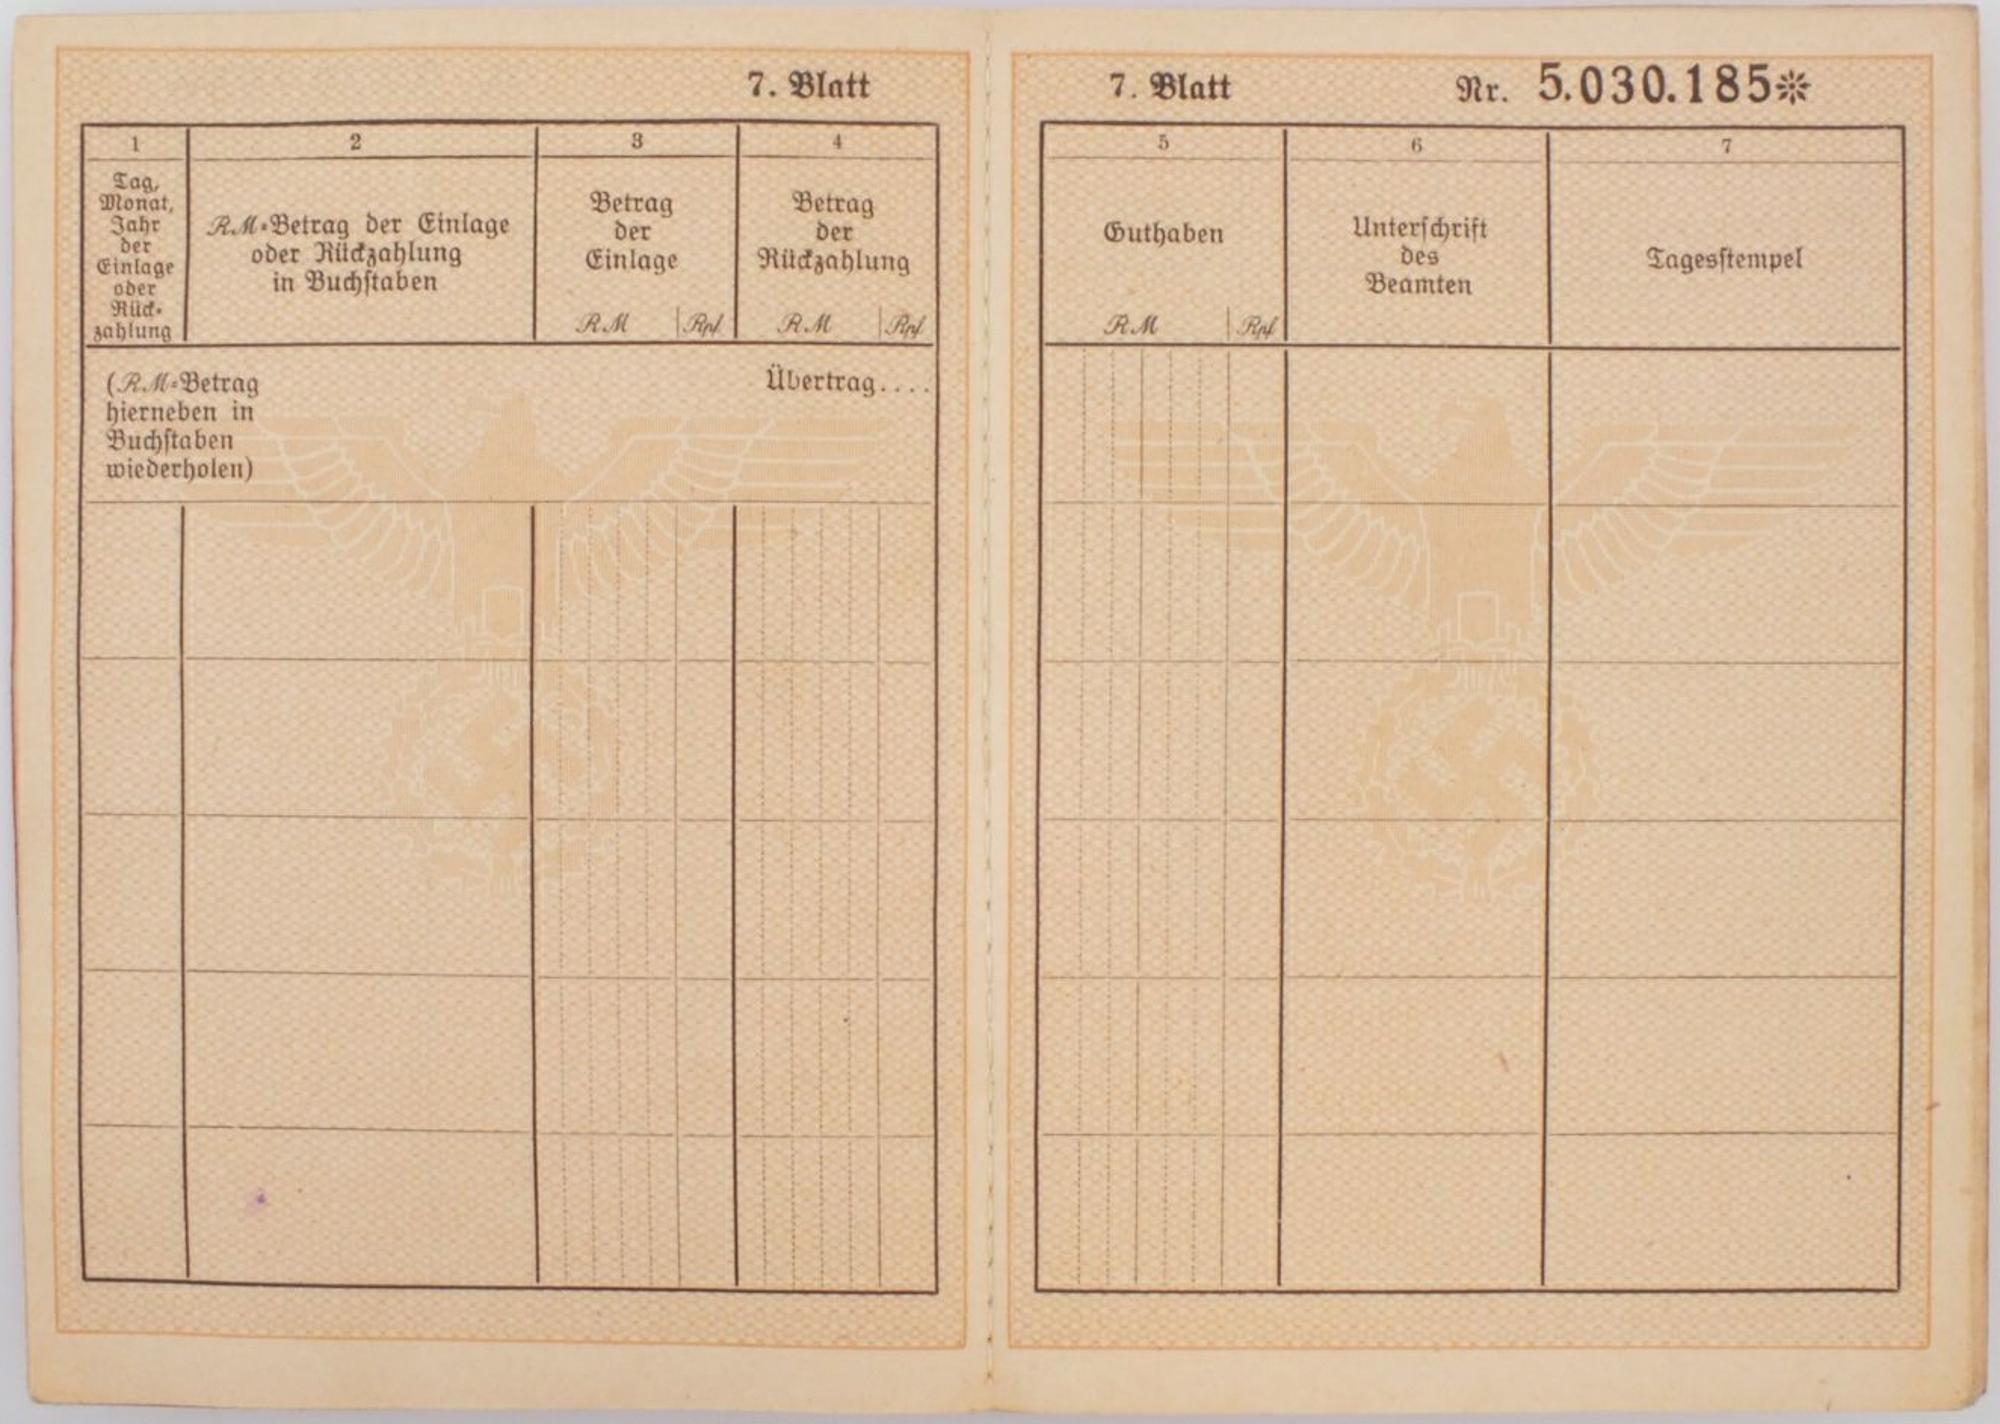 7. Blatt
1
2
3
4
Tag,
Monat,
Jahr
der
Einlage
oder
Rück-
zahlung
RM-Betrag der Einlage
oder Rückzahlung
in Buchstaben
Betrag
der
Einlage
RM Rpf
Betrag
der
Rückzahlung
RM Rpf
(RM-Betrag
hierneben in
Buchstaben
wiederholen)
Übertrag....
7. Blatt Nr. 5.030.185*
5
6
7
Guthaben
RM Rpf
Unterschrift
des
Beamten
Tagesstempel